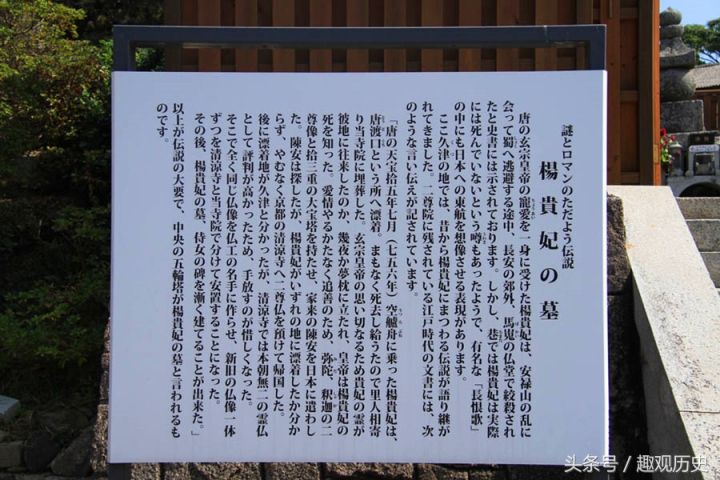 謎とロマンのただよう伝説
楊貴妃の墓
唐の玄宗皇帝の寵愛を一身に受けた楊貴妃は、安禄山の乱に
会って蜀へ逃避する途中、長安の郊外、馬嵬の仏堂で絞殺され
たと史書には示されております。しかし、巷では楊貴妃は実際
には死んでいないという噂もあったようで、有名な「長恨歌」
の中にも日本への東航を想像させる表現があります。
ここ久津の地では、昔から楊貴妃にまつわる伝説が語り継が
れてきました。二尊院に残されている江戸時代の文書には、次
のような言い伝えが記されています。
「唐の天宝拾五年七月(七五六年)空艫舟に乗った楊貴妃は、
唐渡口という所へ漂着。まもなく死去し給うたので里人相寄
り当寺院に埋葬した。玄宗皇帝の思い切なるため貴妃の霊が
彼地に往来したのか、幾夜か夢枕に立たれ、皇帝は楊貴妃の
死を知った。愛情やるかたなく追善のため、弥陀、釈迦の二
尊像と拾三重の大宝塔を持たせ、家来の陳安を日本に遣わし
た。陳安は探したが、楊貴妃がいずれの地に漂着したか分か
らず、やむなく京都の清涼寺へ二尊仏を預けて帰国した。
後に漂着地が久津と分かったが、清涼寺では本朝無二の霊仏
として評判が高かったため、手放すのが惜しくなった。
そこで全く同じ仏像を仏工の名手に作らせ、新旧の仏像一体
ずつを清涼寺と当寺院で分けて安置することになった。
その後、楊貴妃の墓、侍女の碑を漸く建てることが出来た。」
以上が伝説の大要で、中央の五輪塔が楊貴妃の墓と言われるも
のです。
头条号 / 趣观历史